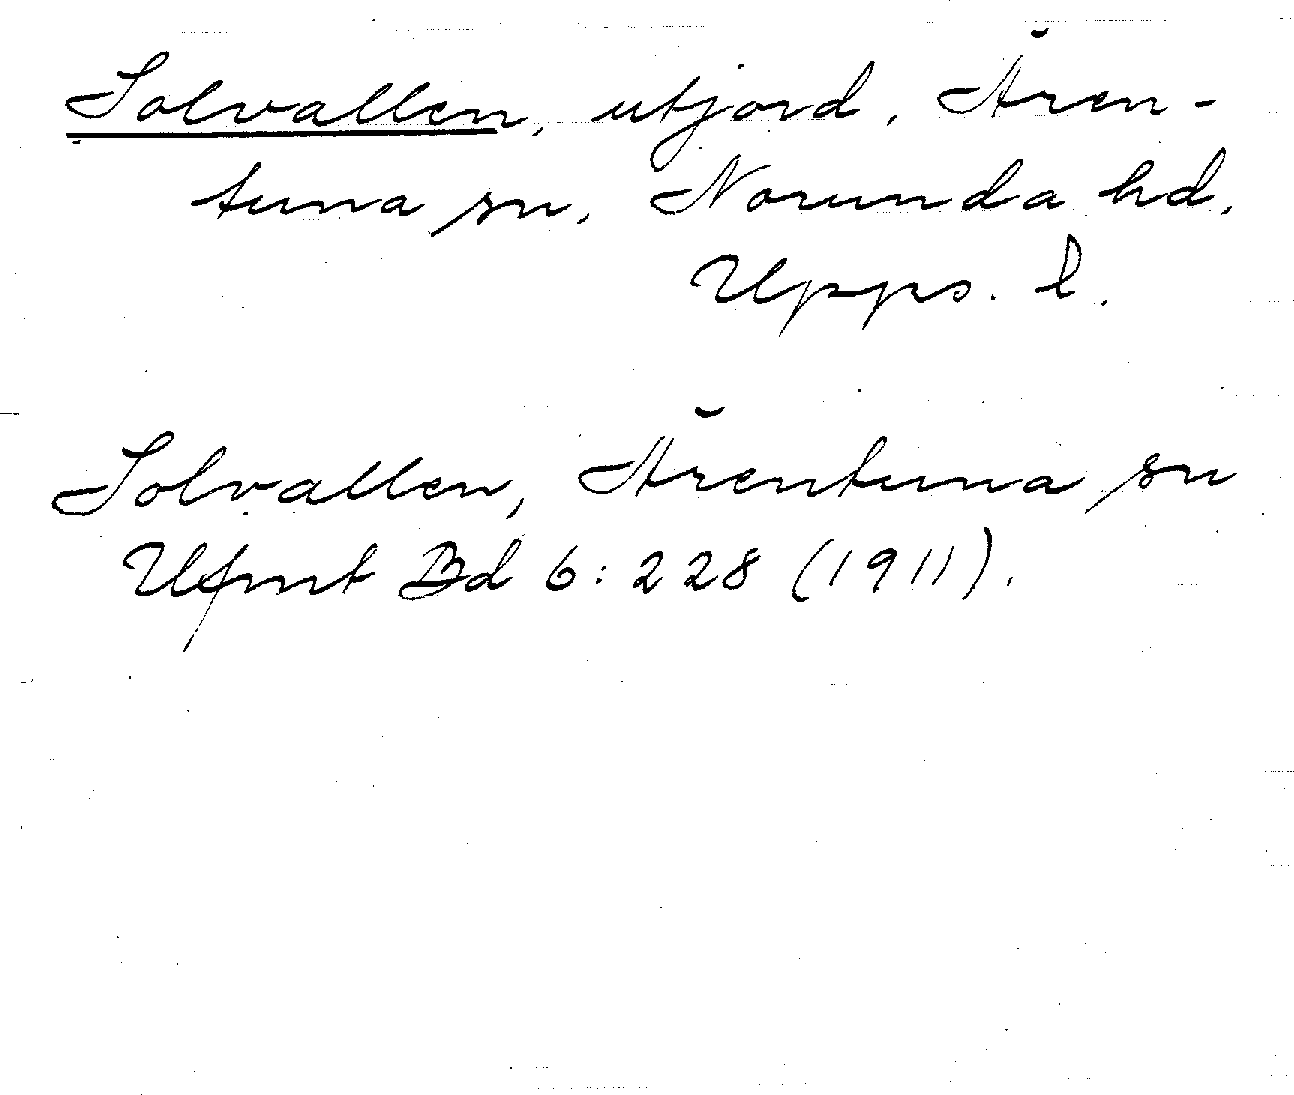 Solvallen, utjord, Ären-
tuna sn, Norunda hd,
Upps. l.
Solvallen, Ärentuna sn
Ufmt Bd 6:228 (1911).